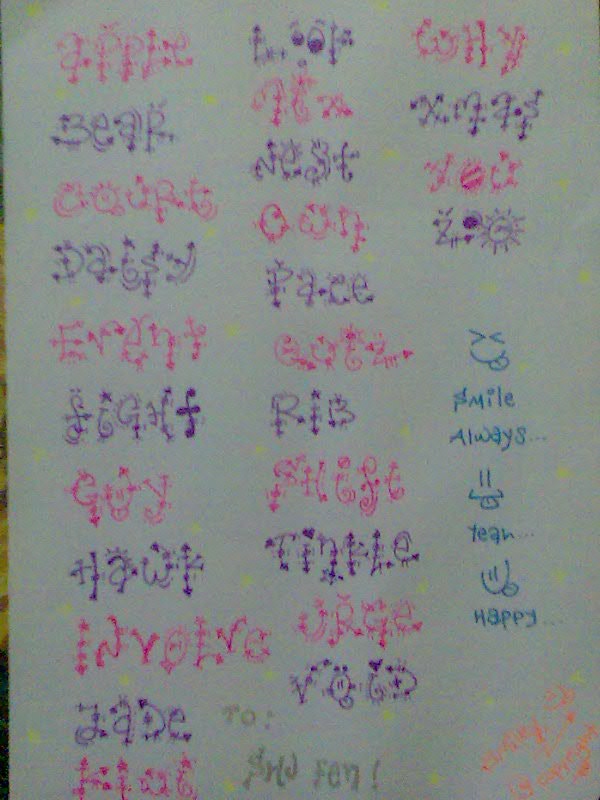 apple
Bear
Court
Daisy
Event
fight
Guy
Hawk
Involve
JaDe
Mix
Nest
Own
Pace
Quiz
RiB
Shift
Tinkle
Urge
Void
Why
Xmas
You
Zoo
Smile
Always...
Yeah...
Happy...
To: